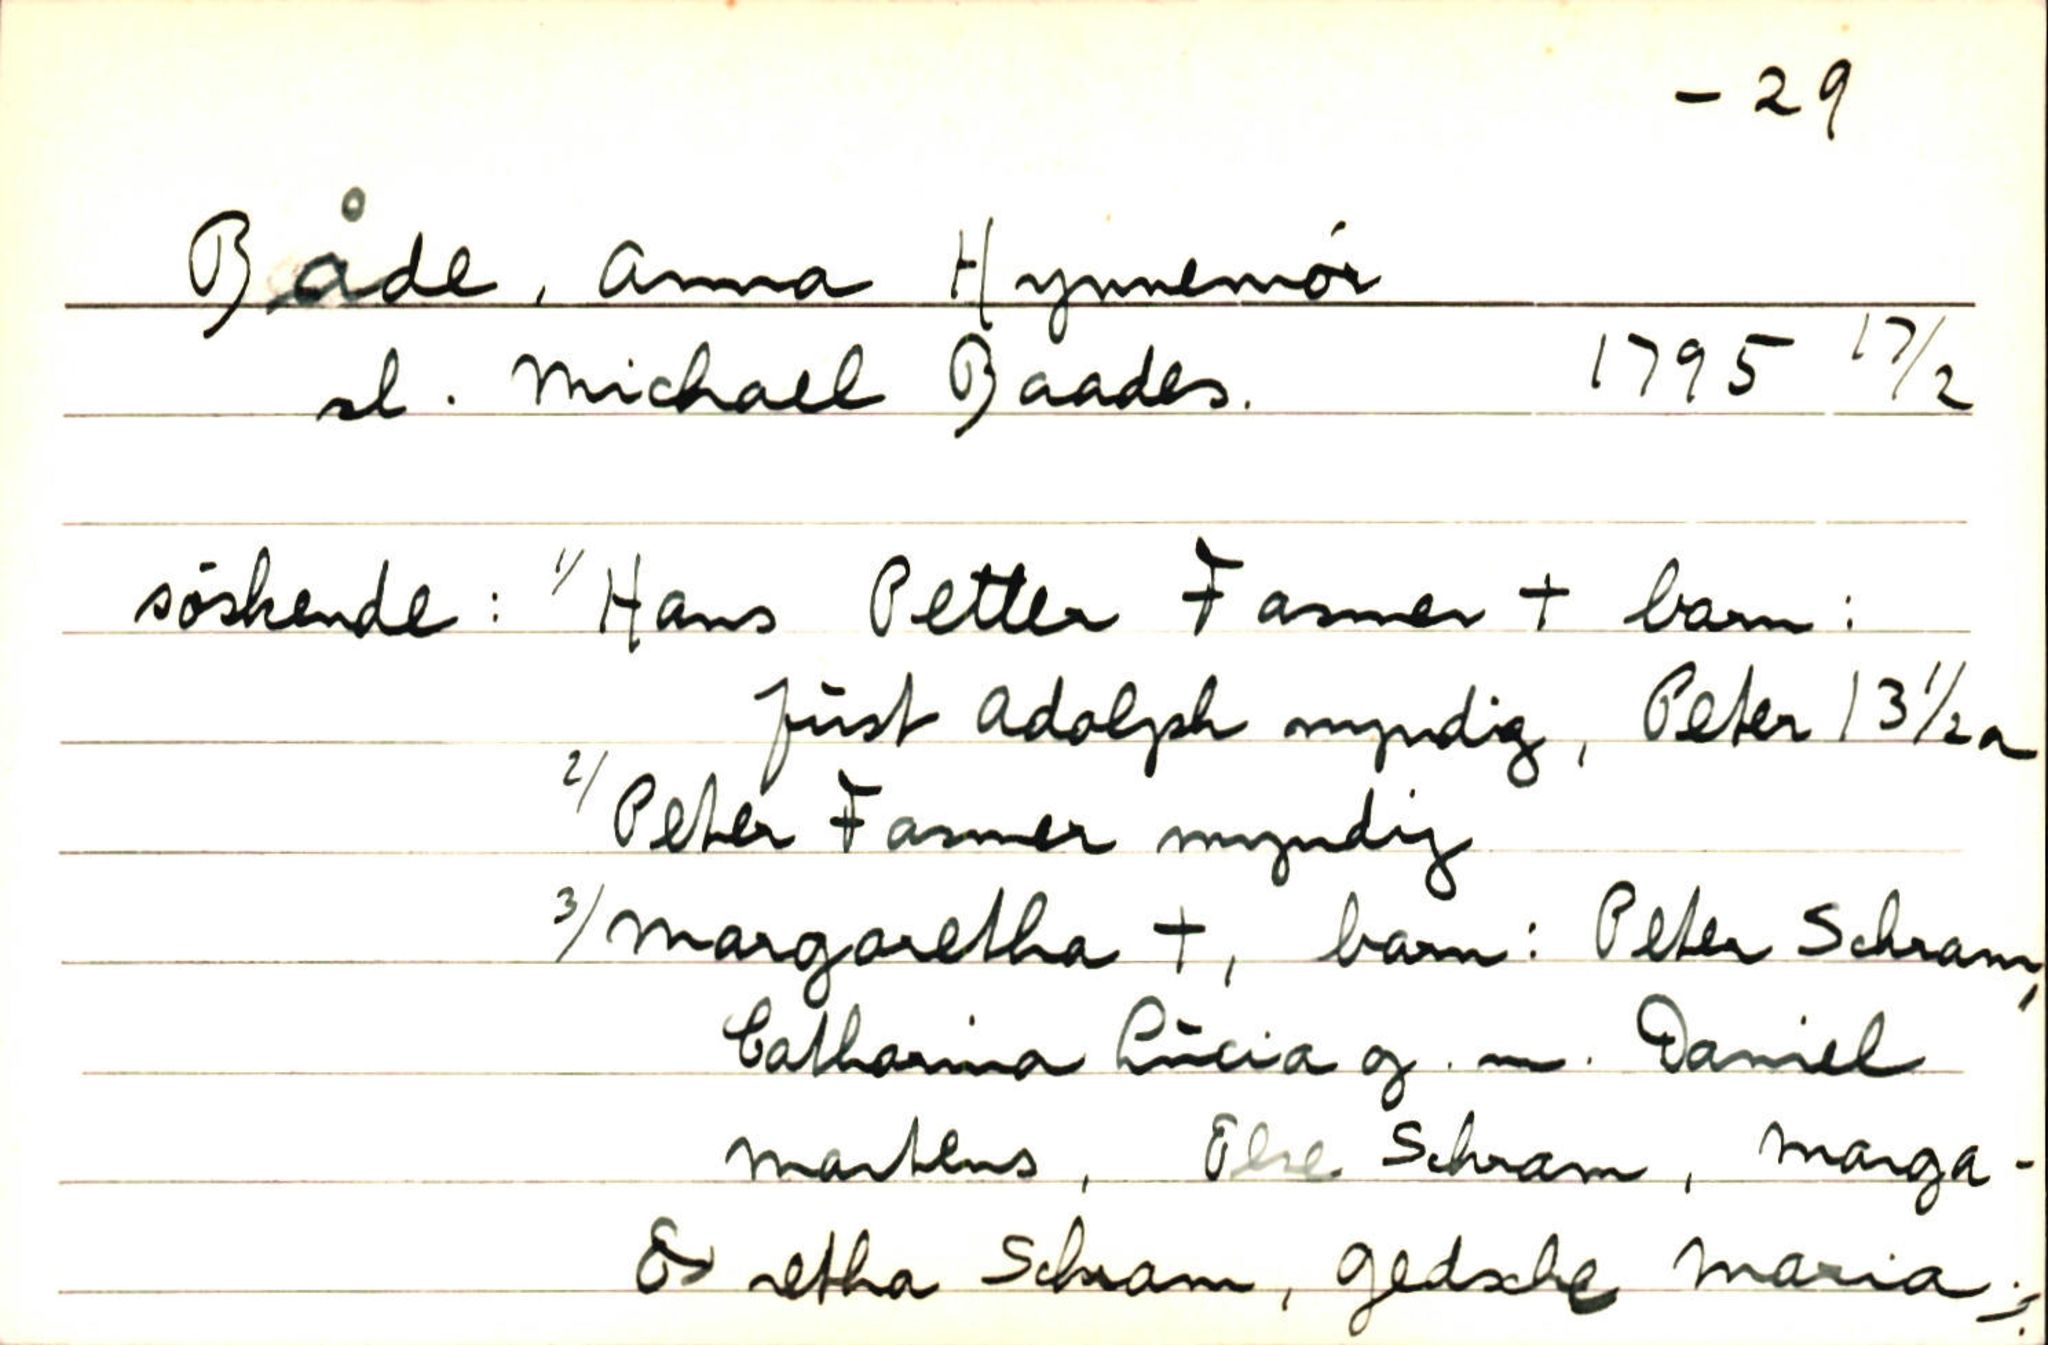 - 29
Både, Anna Hynnemör
sl. Michael Baades. 1795 17/2
söskende: 1/ Hans Petter Fasmer + barn:
Just Adolph myndig, Peter 13 1/2 a
2/ Peter Fasmer myndig
3/ Margaretha +, barn: Peter Schram,
Catharina Lucia g. m. Daniel
Martens, Else Schram, Marga-
retha Schram, Gedsche Maria